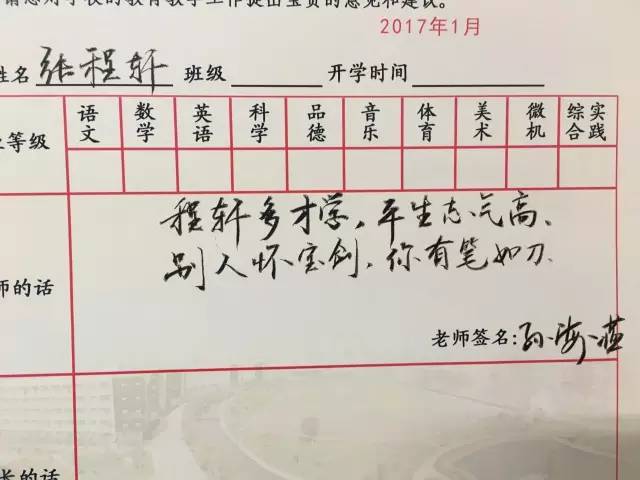 请您对学校的教育教学工作提出宝贵的意见和建议。
2017年1月
姓名 张程轩 班级 开学时间
等级 语文 数学 英语 科学 品德 音乐 体育 美术 微机 综合实践
师的话
程轩多才学，平生志气高、
别人怀宝剑，你有笔如刀.
老师签名:孙海燕
长的话